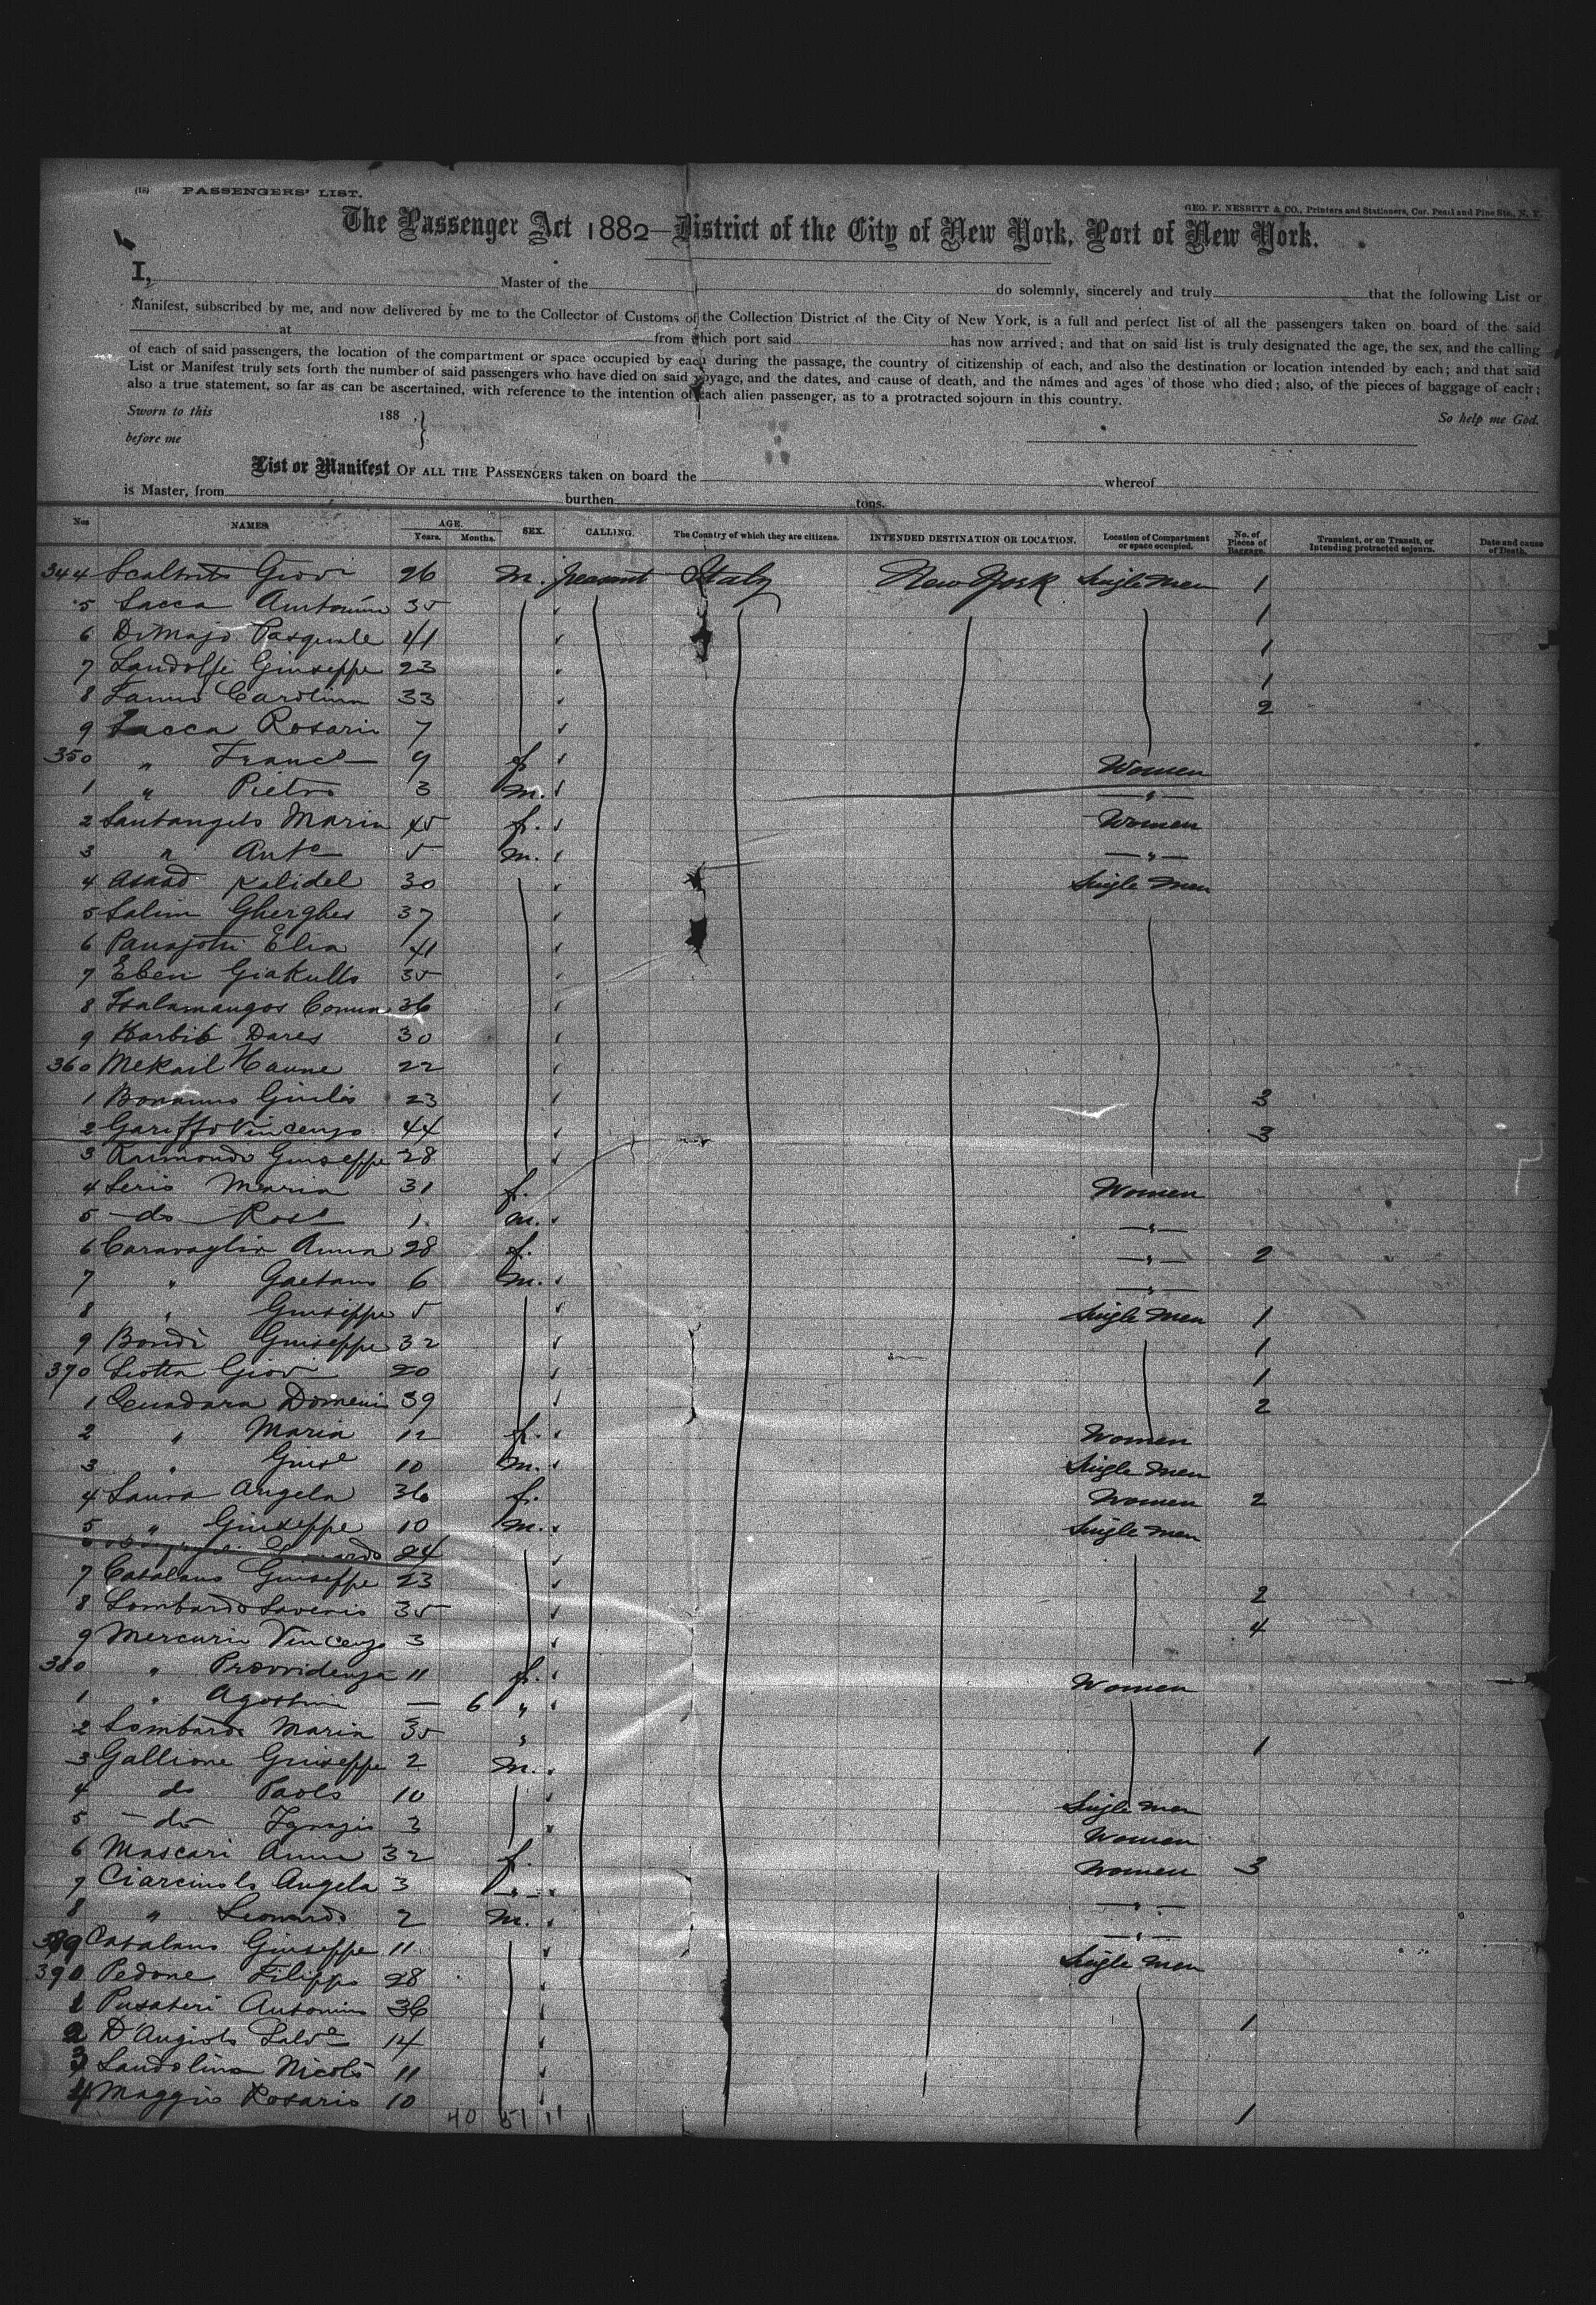 (18) PASSENGERS' LIST.
GEO. F. NESBITT & CO., Printers and Stationers, Cor. Pearl and Pine Sts., N. Y.
The Passenger Act 1882—District of the City of New York, Port of New York.
I, Master of the do solemnly, sincerely and truly that the following List or
Manifest, subscribed by me, and now delivered by me to the Collector of Customs of the Collection District of the City of New York, is a full and perfect list of all the passengers taken on board of the said
at from which port said has now arrived; and that on said list is truly designated the age, the sex, and the calling
of each of said passengers, the location of the compartment or space occupied by each during the passage, the country of citizenship of each, and also the destination or location intended by each; and that said
List or Manifest truly sets forth the number of said passengers who have died on said voyage, and the dates, and cause of death, and the names and ages of those who died; also, of the pieces of baggage of each;
also a true statement, so far as can be ascertained, with reference to the intention of each alien passenger, as to a protracted sojourn in this country.
Sworn to this 188 } So help me God.
before me
List or Manifest OF ALL THE PASSENGERS taken on board the whereof
is Master, from burthen tons.
Nos NAMES AGE. Years. Months. SEX. CALLING. The Country of which they are citizens. INTENDED DESTINATION OR LOCATION. Location of Compartment or space occupied. No. of Pieces of Baggage. Transient, or on Transit, or Intending protracted sojourn. Date and cause of Death.
344 Giovi 26 m. peasant Italy New York Single Men 1
5 Sacca 35 1
6 DiMajo Pasquale 41 1
7 Landolfi Giuseppe 23 1
8 Carolina 33 2
9 Sacca Rosario 7
350 " Franca 9 f. Women
1 " Pietro 3 m. "
2 Santangelo Maria 45 f. Women
3 " Anto 5 m. "
4 Asaad Kalidel 30 Single Men
5 Salim Gherghes 37
6 Panajotti Elia 41
7 Eben 35
8 36
9 Harbib Dares 30
360 Mekail Haune 22
1 Bonanno Giulio 23 3
2 Gariffo Vincenzo 44 3
3 Raimondo Giuseppe 28
4 Serio Maria 31 f. Women
5 do Rosa 1 m. "
6 Caravaglio Anna 28 f. " 2
7 " Gaetano 6 m. "
8 " Giuseppe 5 Single Men 1
9 Bondi Giuseppe 32 1
370 Liotta Giovi 20 1
1 Guadara Domeni 39 2
2 " Maria 12 f. Women
3 " Guise 10 m. Single Men
4 Laura Angela 36 f. Women 2
5 " Giuseppe 10 m. Single Men
6 24
7 Catalano Giuseppe 23 2
8 Lombardo Saverio 35 4
9 Mercurio Vincenzo 3
380 " Provvidenza 11 f. Women
1 " Agostina — 6 "
2 Lombardo Maria 35 " 1
3 Gallione Giuseppe 2 m.
4 do Paolo 10 Single Men
5 do Ignazio 3 Women
6 Mascari Anna 32 f. Women 3
7 Ciarcinolo Angela 3 " "
8 " Leonardo 2 m. "
389 Catalano Giuseppe 11 Single Men
390 Pedone Filippo 28
1 Pusateri Antonino 36 1
2 D'Angiolo Salve 14
3 Landolina Nicolò 11
4 Maggio Rosario 10 1
40 51 11